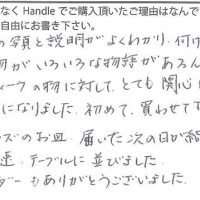 なく Handle でご購入頂いたご理由はなんで
自由にお書き下さい。
の写真と説明がよくわかり、付け
物がいろいろな物語があるん
ィークの物に対して、とても関心
になりました。初めて、買わせて
ズのお皿、届いた次の日が
速、テーブルに並びました。
ダーもありがとうございました。